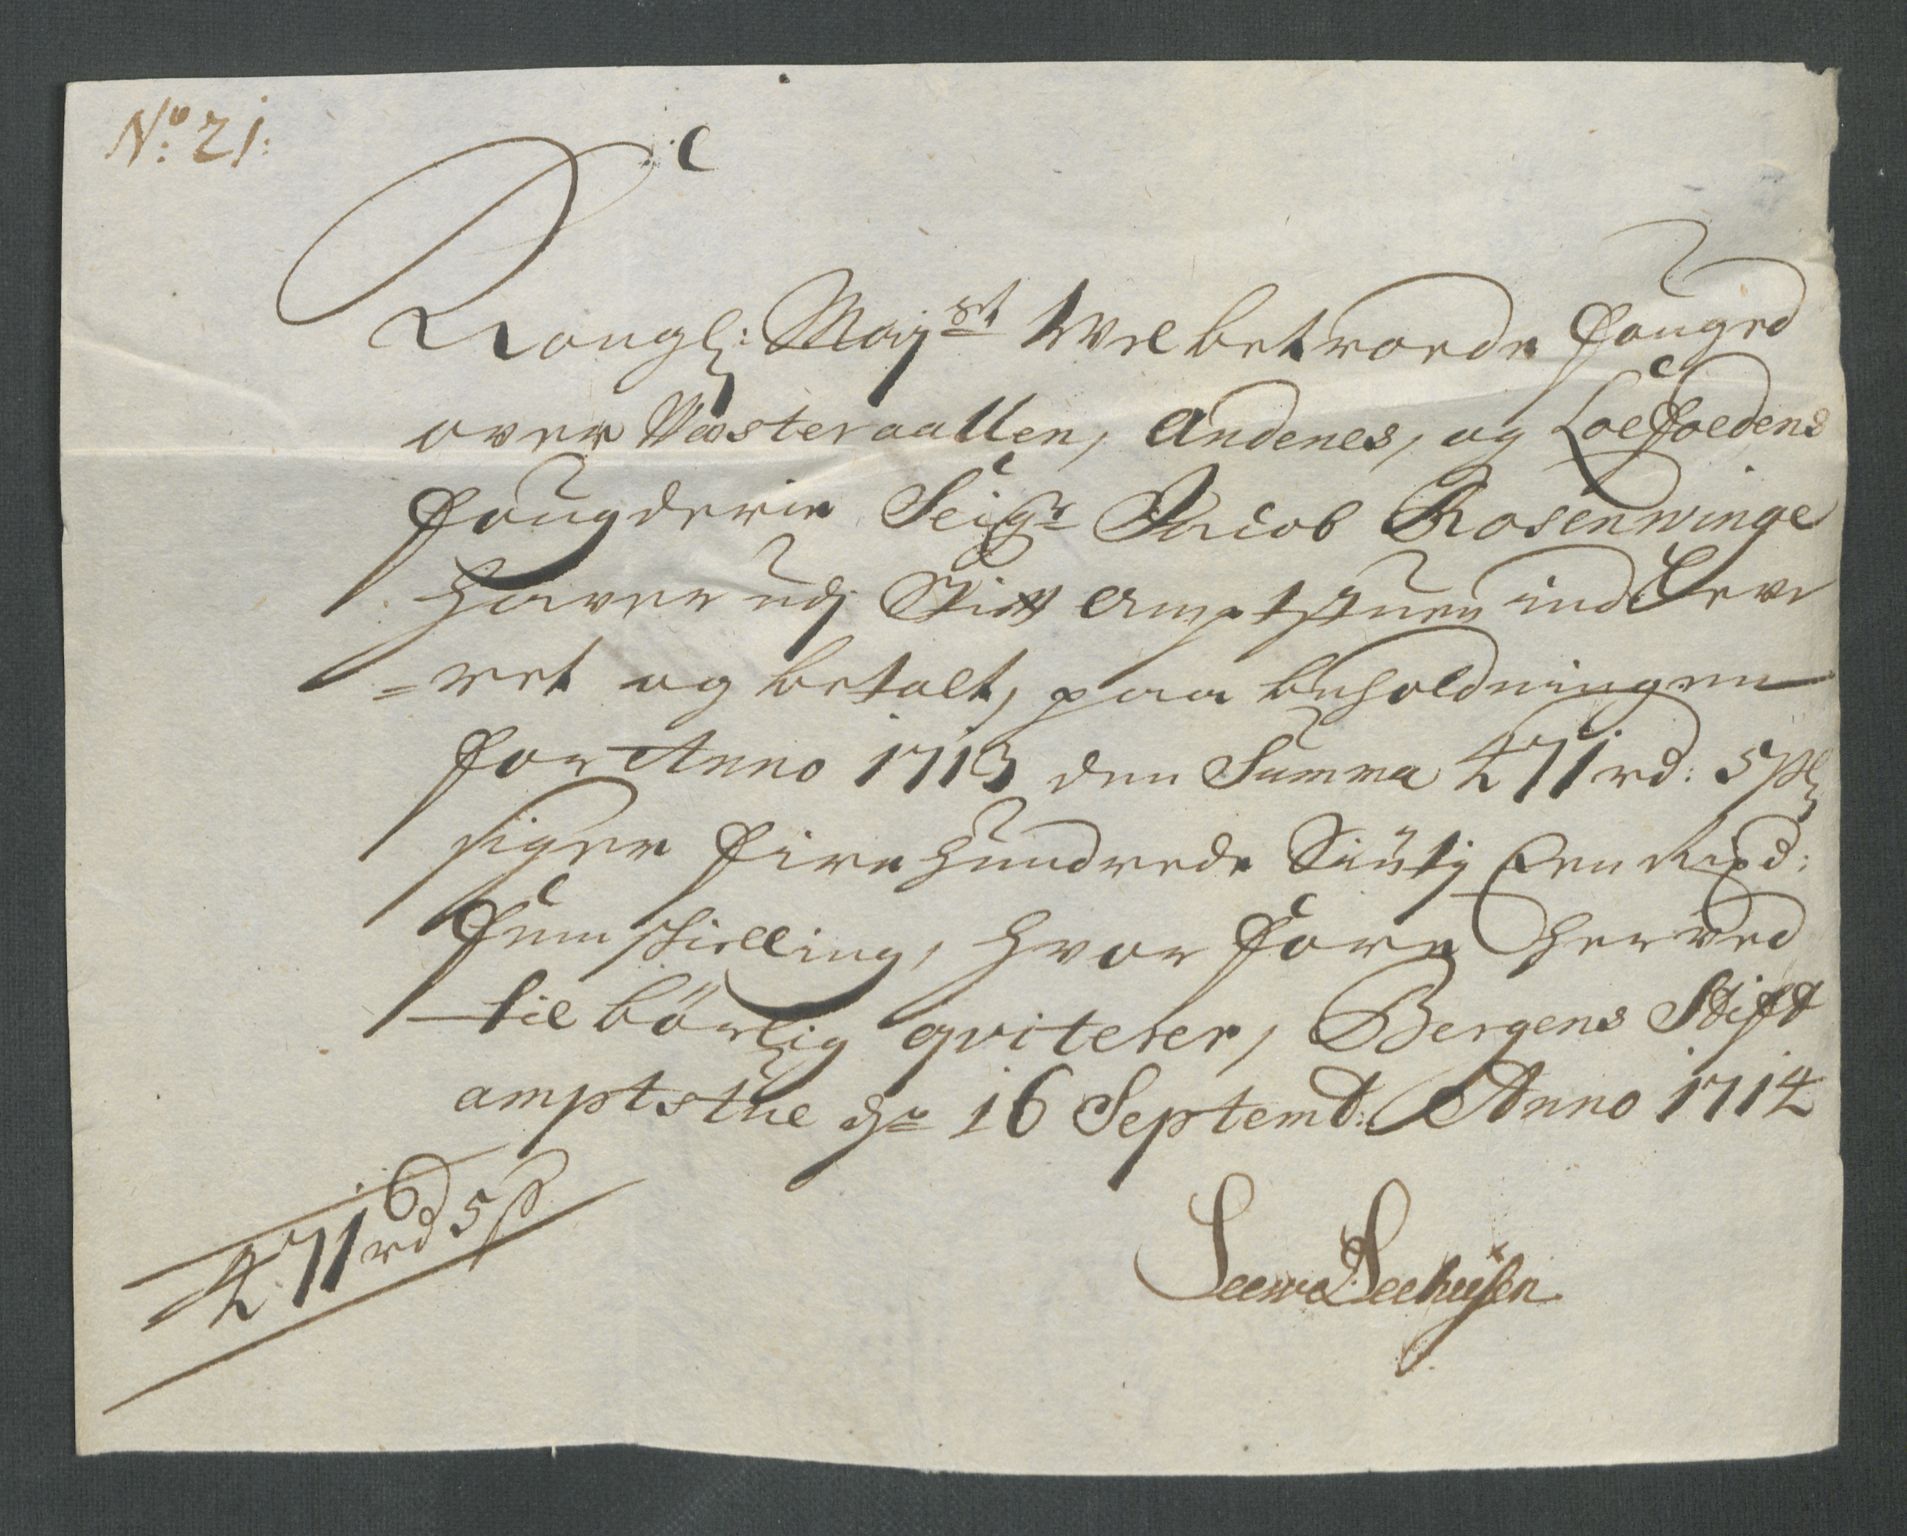 No: 21:
Kongl: Maÿst: Welbetroede Fouged
over Wæsteraallen, Andenes, og Loefoedens
Fougderie Seigr Jacob Rosenwinge
haver udj Stift Amptstuen ind Leve
=ret og betalt, paa beholdningen
for Anno 1713 den Summa 471 rd: 5 ß
siger Fire hundrede Siütj Een Rixd:
Fem skilling, hvor fore herved
tilbörlig qviterer, Bergens Stift
amptstue dn 16 Septemb: Anno 1714
471 rd 5 ß
Seewe Seehusen